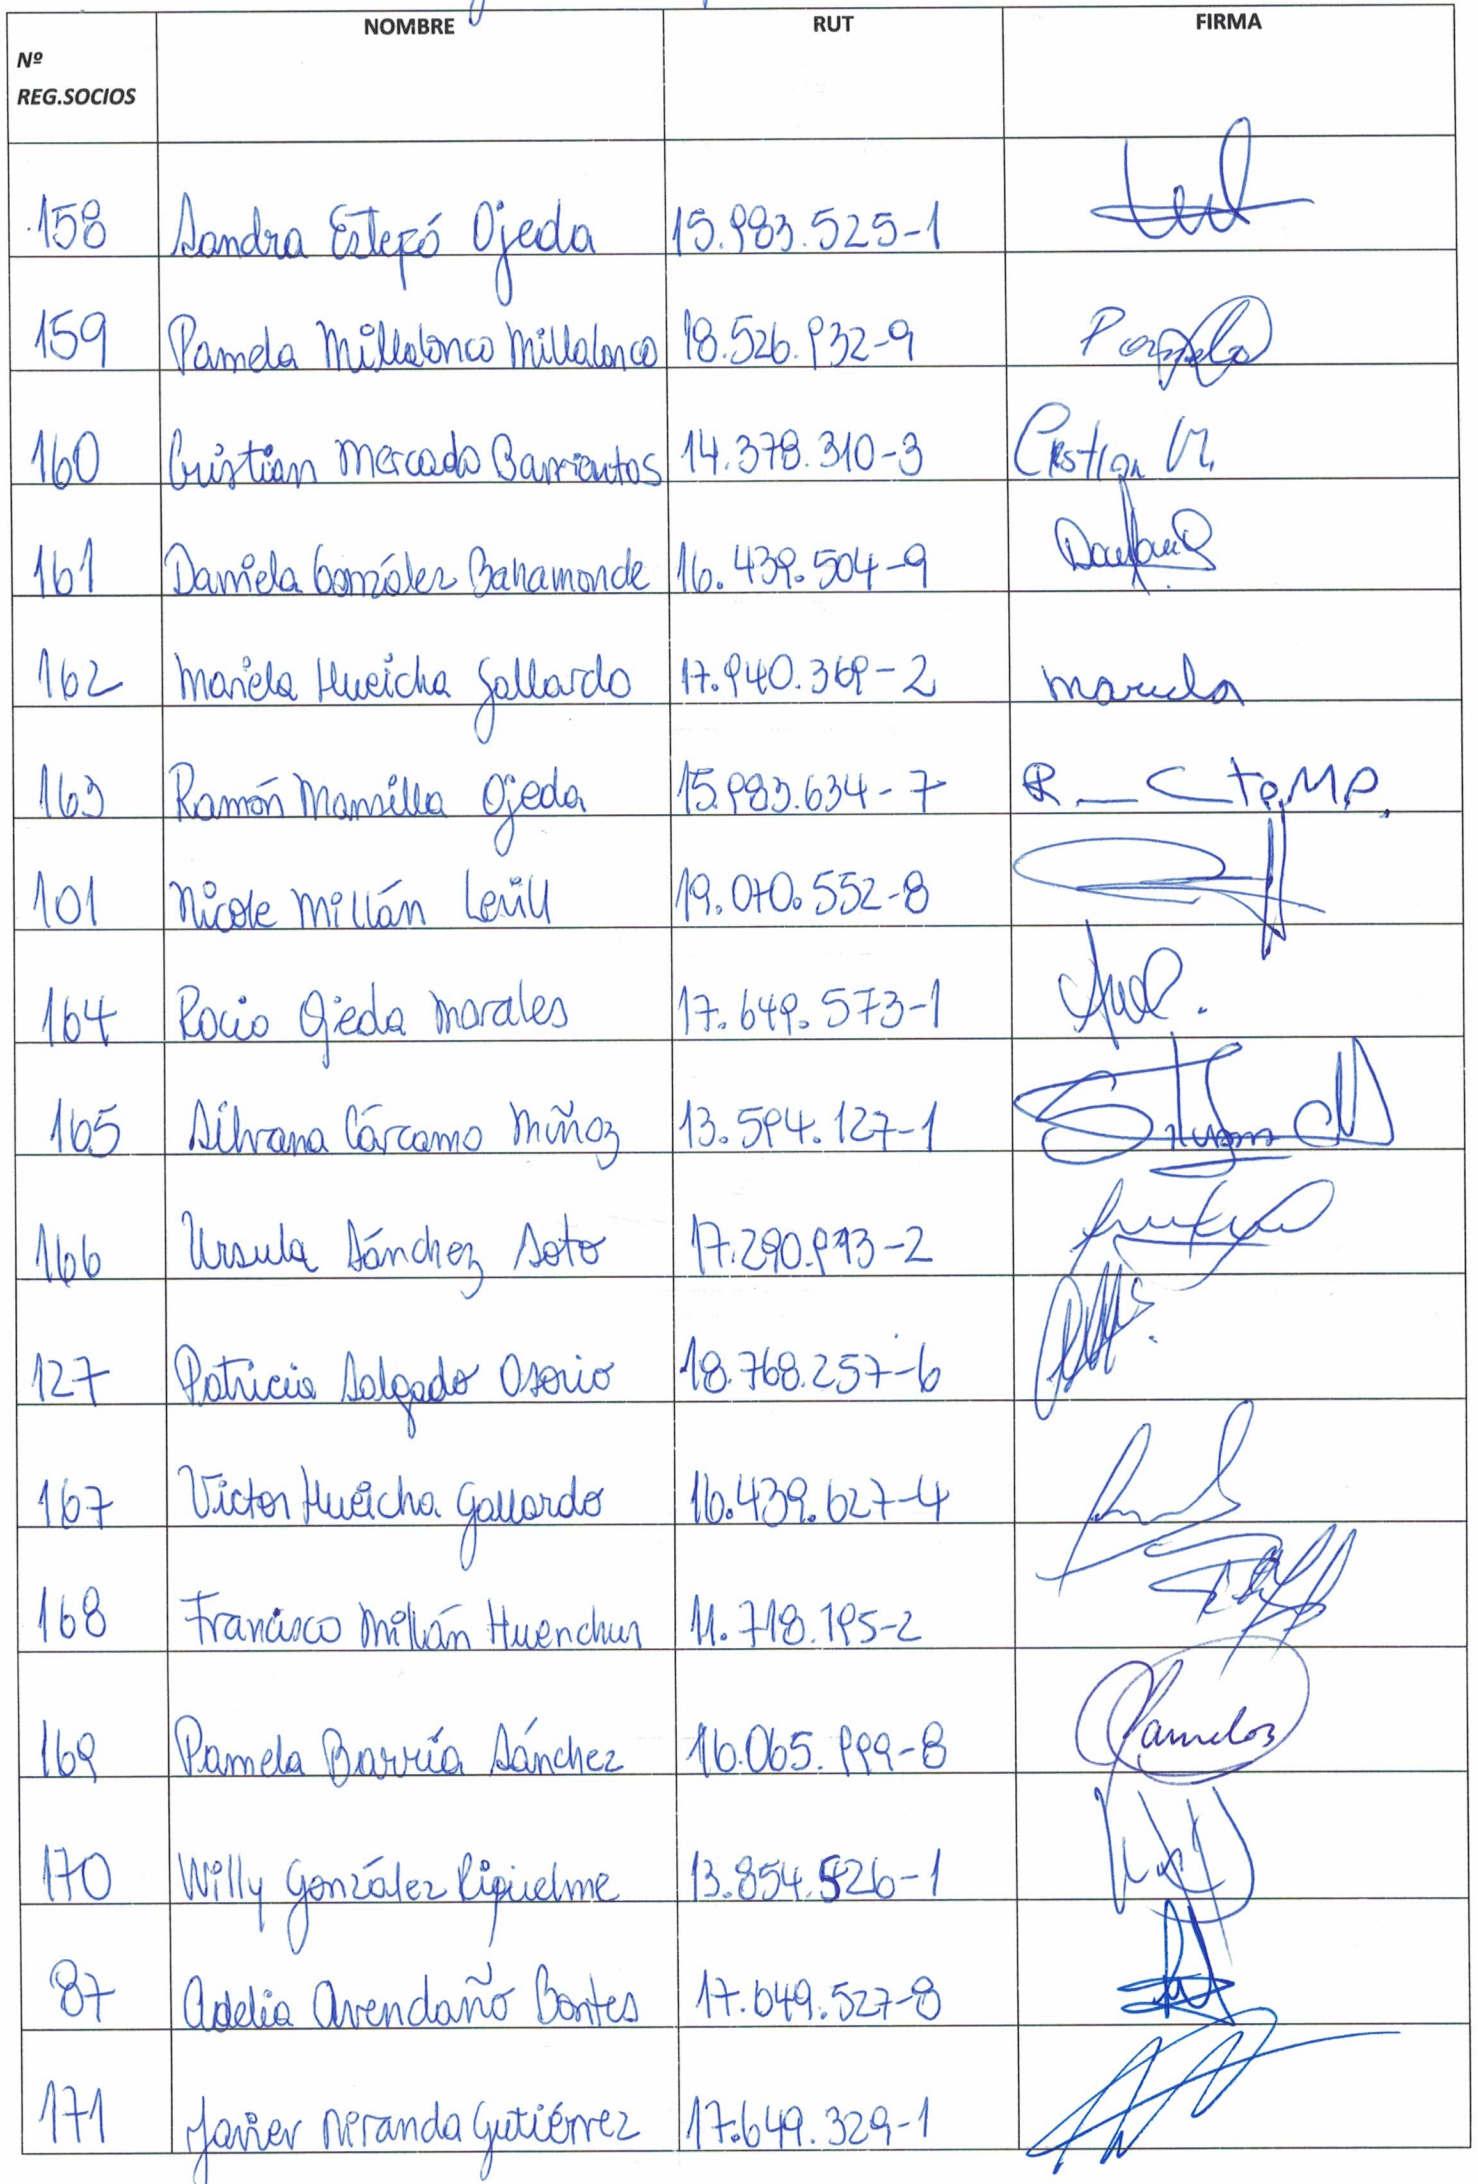 NOMBRE RUT FIRMA
Nº
REG.SOCIOS
158 Sandra Estepó Ojeda 15.983.525-1
159 Pamela Millalonco Millalonco 18.526.932-9 Pamela
160 Cristian Mercado Barrientos 14.378.310-3 Cristian M.
161 Daniela González Bahamonde 16.439.504-9
162 Mariela Hueicha Gallardo 17.940.369-2 Mariela
163 Ramón Mansilla Ojeda 15.983.634-7
101 Nicole Millán Levill 19.070.552-8
164 Rocio Ojeda Morales 17.649.573-1
165 Silvana Cárcamo Muñoz 13.594.127-1
166 Ursula Sánchez Soto
127 Patricia Salgado Osorio 18.768.257-6
167 Victor Hueicha Gallardo 16.439.627-4
168 Francisco Millán Huenchur 11.718.195-2
169 Pamela Barría Sánchez 16.065.999-8
170 Willy González Riquelme 13.854.526-1
87 Adelia Avendaño 17.649.527-8
171 Javier Miranda Gutiérrez 17.649.329-1